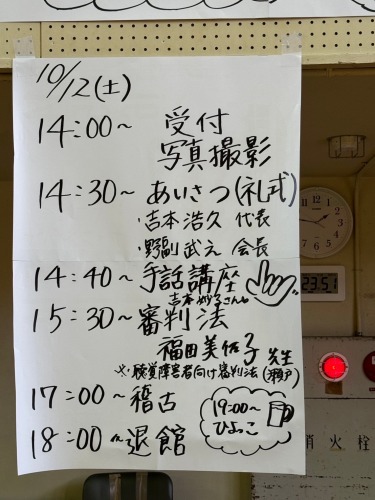 10/12(土)
14:00~ 受付
写真撮影
14:30~ あいさつ(礼式)
・吉本浩久 代表
・野副武之 会長
14:40~手話講座
吉本妙子さん
15:30~審判法
福田美佐子先生
※聴覚障害者向け審判法(瀬戸)
17:00~稽古
19:00~
ひよっこ
18:00~退館
23.51
消火栓